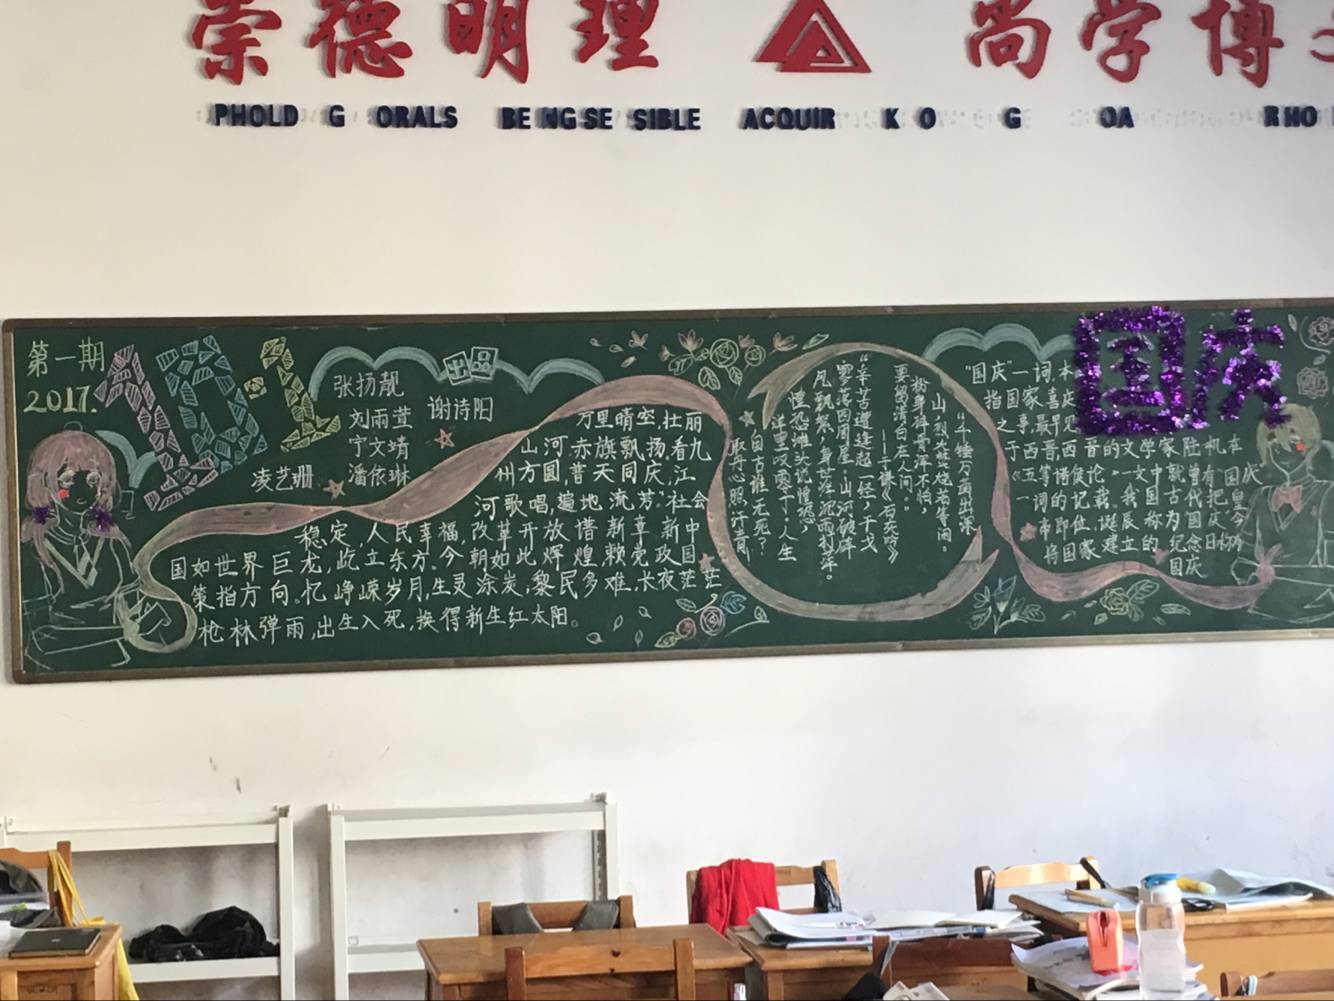 崇德明理 尚学博
PHOLD G ORALS BE NG SE SIBLE ACQUIR K O G OA RHO
第一期
2017.
出品
张扬靓
刘雨萱 谢诗阳
宁文靖
凌艺珊 潘依琳
万里晴空,壮丽
山河,赤旗飘扬,看九
州方圆,普天同庆,江
河歌唱,遍地流芳。社会
稳定,人民幸福,改革开放谱新章,新中
国如世界巨龙,屹立东方。今朝如此辉煌,赖党政国
策指方向。忆峥嵘岁月,生灵涂炭,黎民多难,长夜茫茫
枪林弹雨,出生入死,换得新生红太阳。
千锤万凿出深
山,烈火焚烧若等闲。
粉身碎骨浑不怕,
要留清白在人间。
——于谦《石灰吟》
辛苦遭逢起一经,干戈
寥落四周星。山河破碎
风飘絮,身世浮沉雨打萍。
惶恐滩头说惶恐,
洋里叹零丁。人生
自古谁无死?
取丹心照汗青。
国庆
“国庆”一词,本
指国家喜庆
之事,最早见
于西晋,西晋的文学家陆机在
《五等诸侯论》一文中就曾有“国庆”
一词的记载。我国古代把皇
帝即位、诞辰称为国庆。今
将国家建立的纪念日称
国庆